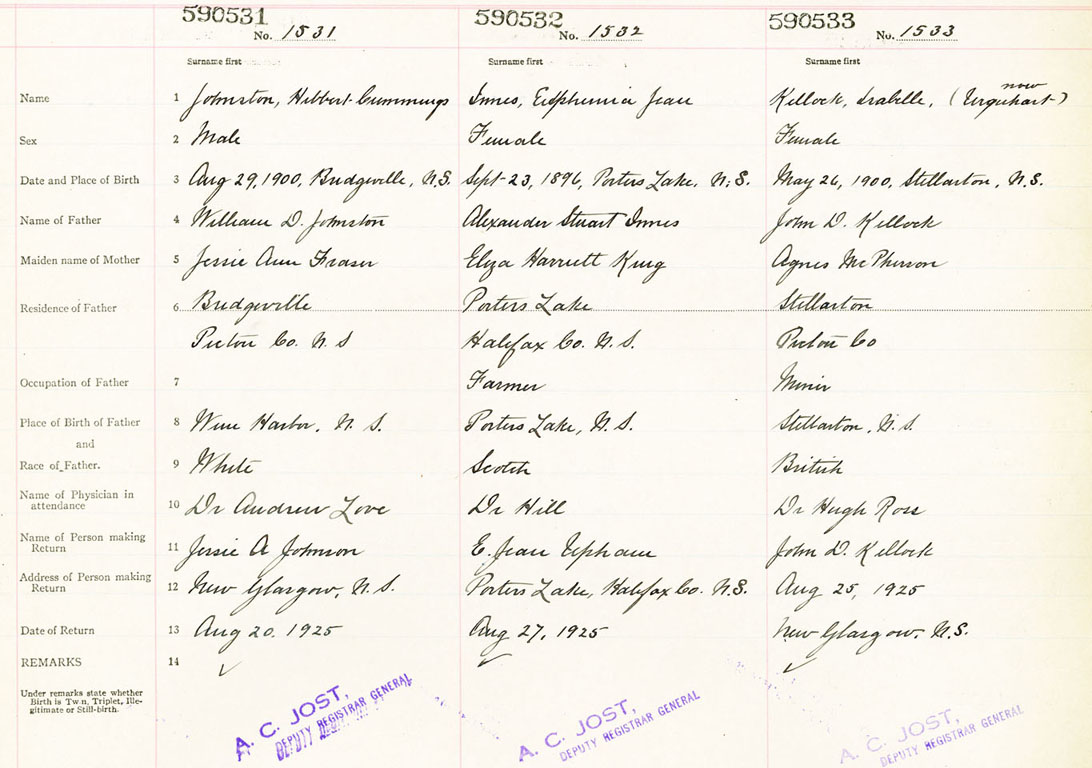 590531 590532 590533
No. 1531 No. 1532 No. 1533
Surname first Surname first Surname first
Name 1 Johnston, Hibbert Cummings Innes, Euphemia Jean Kellock, Isabelle, (now Urquhart)
Sex 2 Male Female Female
Date and Place of Birth 3 Aug 29, 1900, Bridgeville, N.S. Sept 23, 1896, Porters Lake, N.S. May 26, 1900, Stellarton, N.S.
Name of Father 4 William D. Johnston Alexander Stuart Innes John D. Kellock
Maiden name of Mother 5 Jessie Ann Fraser Eliza Harriett King Agnes McPherson
Residence of Father 6 Bridgeville Porters Lake Stellarton
Pictou Co. N.S Halifax Co. N.S. Pictou Co
Occupation of Father 7 Farmer Miner
Place of Birth of Father 8 Wine Harbor, N.S. Porters Lake, N.S. Stellarton, N.S
and
Race of Father. 9 White Scotch British
Name of Physician in
attendance 10 Dr Andrew Love Dr Hill Dr Hugh Ross
Name of Person making
Return 11 Jessie A Johnson E. Jean Upham John D. Kellock
Address of Person making
Return 12 New Glasgow, N.S. Porters Lake, Halifax Co. N.S. Aug 25, 1925
Date of Return 13 Aug 20. 1925 Aug 27, 1925 New Glasgow. N.S.
REMARKS 14 ✓ ✓ ✓
Under remarks state whether
Birth is Twin, Triplet, Ille-
gitimate or Still-birth.
A. C. JOST, A. C. JOST, A. C. JOST,
DEPUTY REGISTRAR GENERAL DEPUTY REGISTRAR GENERAL DEPUTY REGISTRAR GENERAL